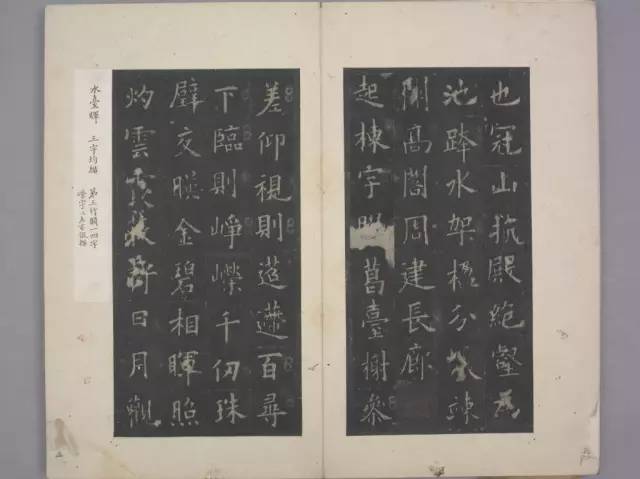 也冠山抗殿絕壑為
池跨水架楹分巖竦
闕高閣周建長廊
起棟宇膠葛臺榭參
差仰視則迢遰百尋
下臨則崢嶸千仞珠
璧交暎金碧相暉照
灼雲霞蔽虧日月觀
水臺暉 三字均描
第三行闕一四字